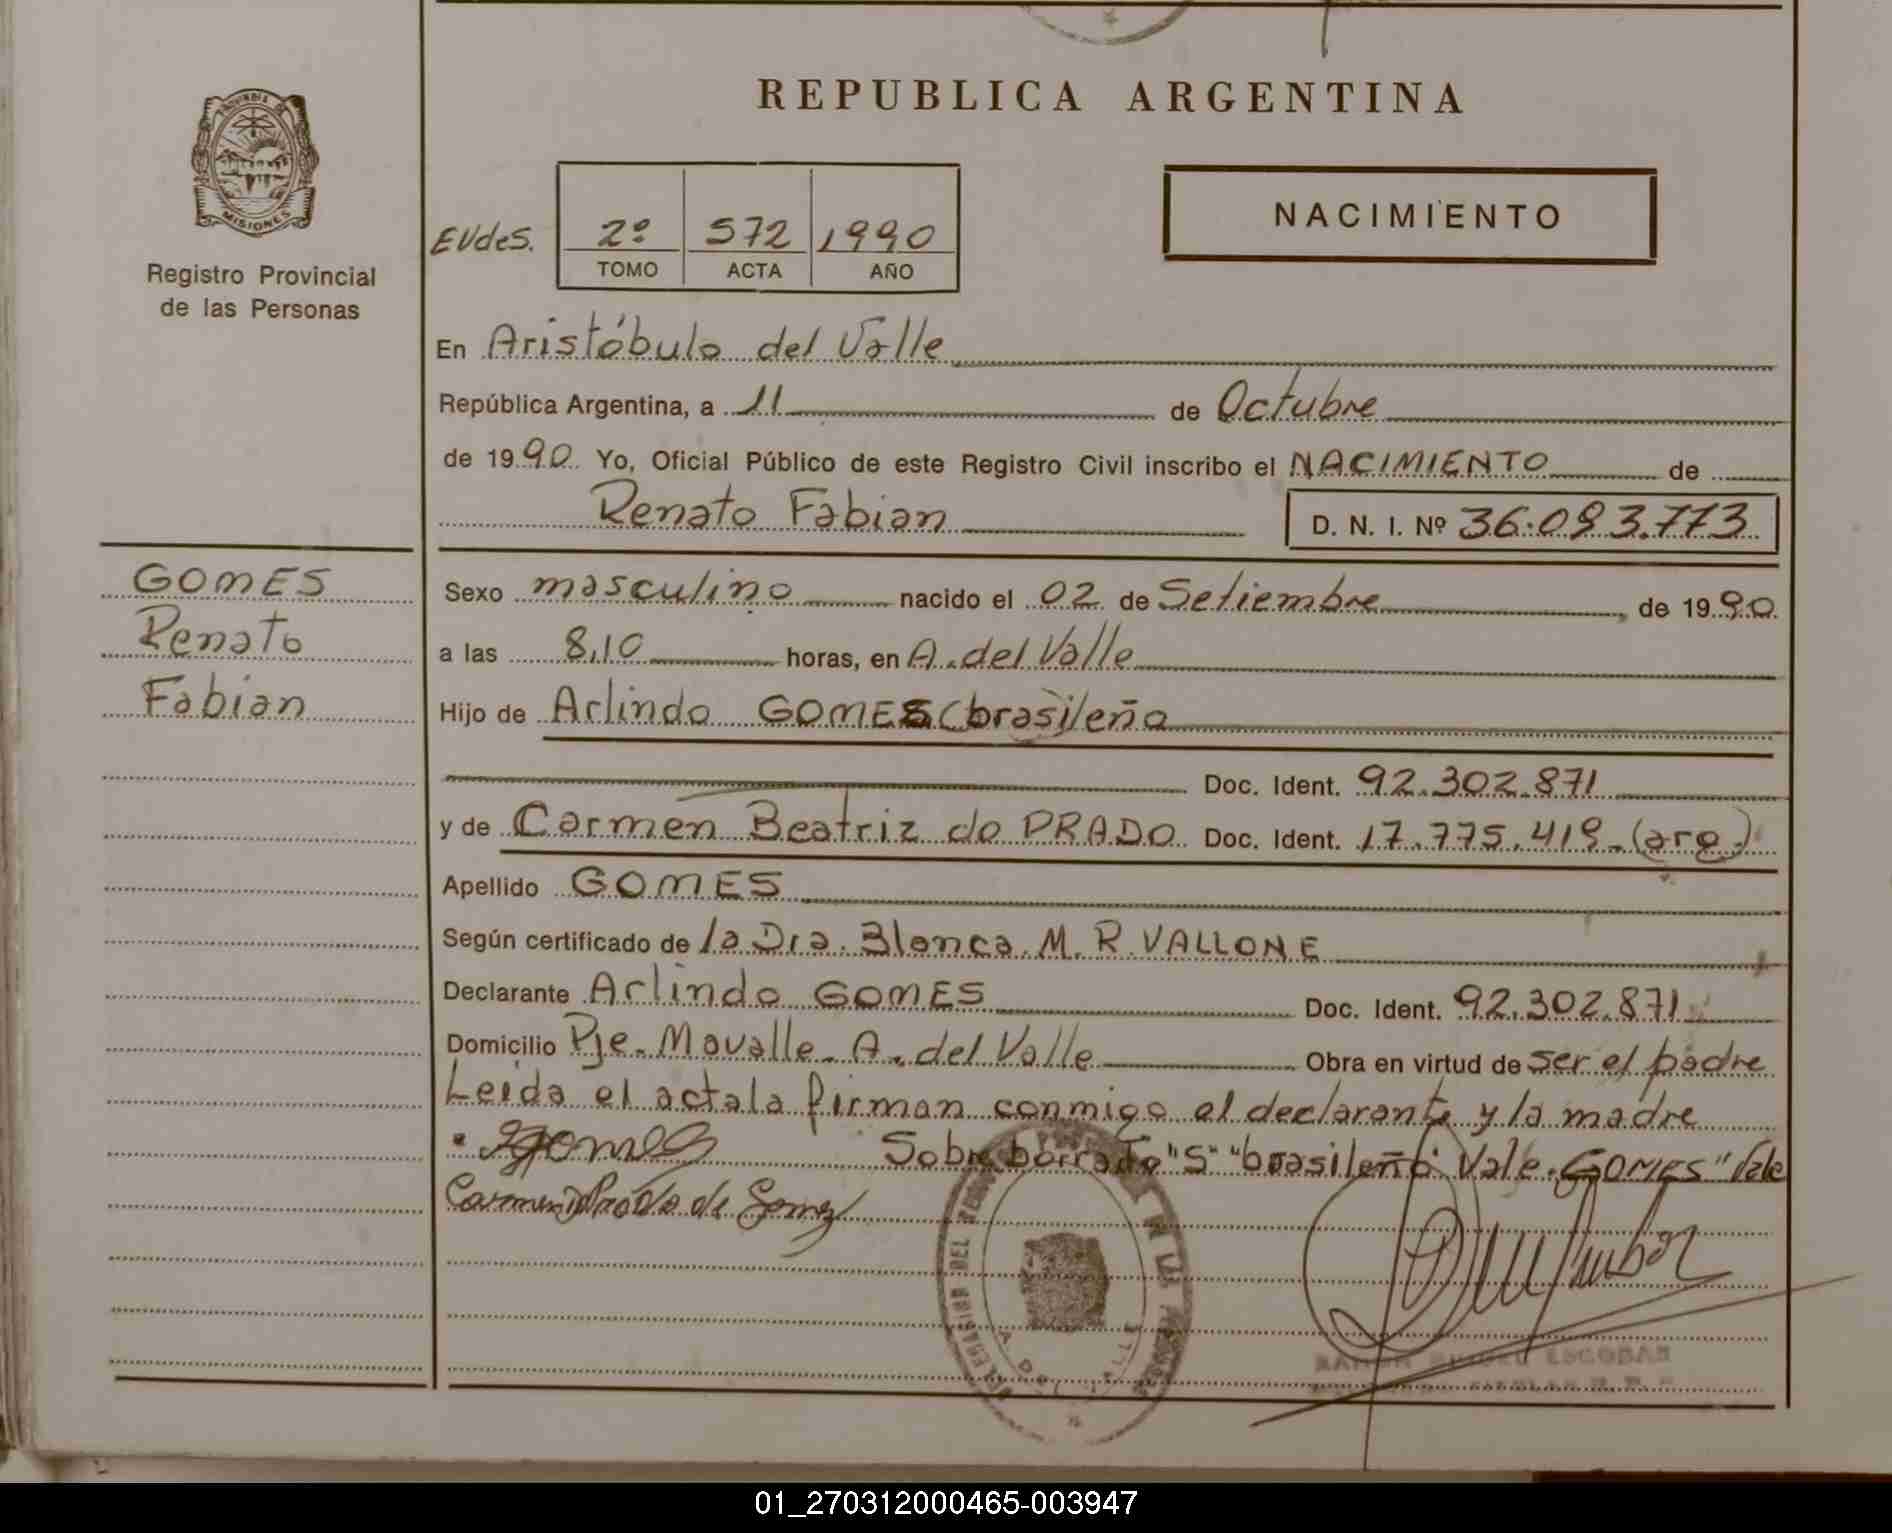 REPUBLICA ARGENTINA
PROVINCIA DE
MISIONES
Registro Provincial
de las Personas
NACIMIENTO
EVdeS. 2º 572 1990
TOMO ACTA AÑO
En Aristóbulo del Valle
República Argentina, a 11 de Octubre
de 1990. Yo, Oficial Público de este Registro Civil inscribo el NACIMIENTO de
Renato Fabian D. N. I. Nº 36.093.773
GOMES
Renato
Fabian
Sexo masculino nacido el 02 de Setiembre, de 1990.
a las 8,10 horas, en A. del Valle
Hijo de Arlindo GOMES (brasileño
Doc. Ident. 92.302.871
y de Carmen Beatriz do PRADO Doc. Ident. 17.775.419.(arg.)
Apellido GOMES
Según certificado de la Dra. Blanca M. R. VALLONE
Declarante Arlindo GOMES Doc. Ident. 92.302.871
Domicilio Pje. Movalle. A. del Valle Obra en virtud de ser el padre
Leida el acta la firman conmigo el declarante y la madre
Sobre borrado "S" "brasileño" Vale. GOMES" Vale
Carmen D Prado de Gomez
RAMON MIGUEL ESCOBAR
01_270312000465-003947